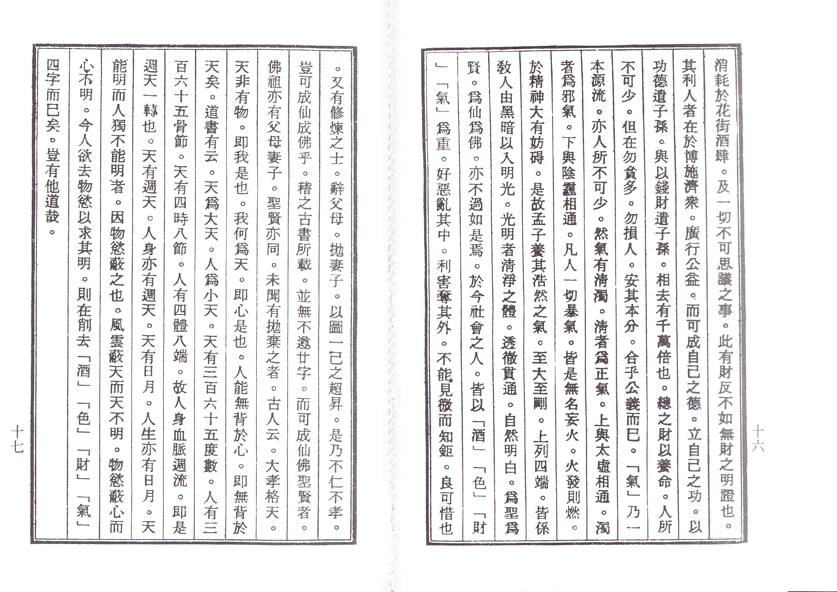 消耗於花街酒肆。及一切不可思議之事。此有財反不如無財之明證也。
其利人者在於博施濟衆。廣行公益。而可成自己之德。立自己之功。以
功德遺子孫。與以錢財遺子孫。相去有千萬倍也。總之財以養命。人所
不可少。但在勿貪多。勿損人。安其本分。合乎公義而已。「氣」乃一
本源流。亦人所不可少。然氣有清濁。清者爲正氣。上與太虛相通。濁
者爲邪氣。下與陰霾相通。凡人一切暴氣。皆是無名妄火。火發則燃。
於精神大有妨碍。是故孟子養其浩然之氣。至大至剛。上列四端。皆係
敎人由黑暗以入明光。光明者淸淨之體。透徹貫通。自然明白。爲聖爲
賢。爲仙爲佛。亦不過如是焉。於今社會之人。皆以「酒」「色」「財
」「氣」爲重。好惡亂其中。利害奪其外。不能見微而知鉅。良可惜也
十六
。又有修煉之士。辭父母。拋妻子。以圖一己之超昇。是乃不仁不孝。
豈可成仙成佛乎。稽之古書所載。並無不邀廿字。而可成仙佛聖賢者。
佛祖亦有父母妻子。聖賢亦同。未聞有拋棄之者。古人云。大孝格天。
天非有物。即我是也。我何爲天。即心是也。人能無背於心。即無背於
天矣。道書有云。天爲大天。人爲小天。天有三百六十五度數。人有三
百六十五骨節。天有四時八節。人有四體八端。故人身血脈週流。即是
週天一轉也。天有週天。人身亦有週天。天有日月。人生亦有日月。天
能明而人獨不能明者。因物慾蔽之也。風雲蔽天而天不明。物慾蔽心而
心不明。今人欲去物慾以求其明。則在削去「酒」「色」「財」「氣」
四字而已矣。豈有他道哉。
十七